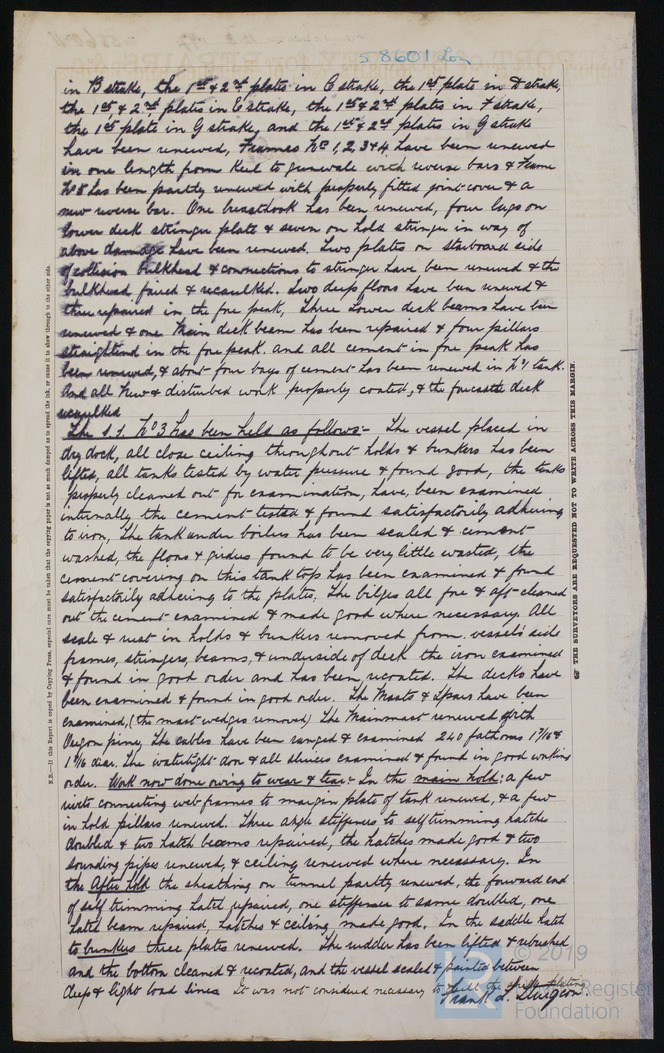 58601 Lon
in B strake, the 1st & 2nd plates in C strake, the 1st plate in D strake,
the 1st & 2nd plates in E strake, the 1st & 2nd plates in F strake,
the 1st plate in G strake, and the 1st & 2nd plates in G strake
have been renewed, Frames No 1, 2, 3 & 4 have been renewed
in one length from Keel to gunwale with reverse bars & Frame
No 8 has been partly renewed with properly fitted joint cover & a
new reverse bar. One breasthook has been renewed, four lugs on
lower deck stringer plate & seven on hold stringer in way of
above damage have been renewed. Two plates on starboard side
of collision bulkhead & connections to stringer have been renewed & the
bulkhead faired & recaulked. Two deep floors have been renewed &
three repaired in the fore peak, Three lower deck beams have been
renewed & one Main deck beam has been repaired & four pillars
straightend in the fore peak. and all cement in fore peak has
been renewed, & about four bays of cement has been renewed in No 1 tank.
And all New & disturbed work properly coated, & the forecastle deck
recaulked
The S.S. No 3 has been held as follows:- The vessel placed in
dry dock, all close ceiling throughout holds & bunkers has been
lifted, all tanks tested by water pressure & found good, the tanks
properly cleaned out for examination, have, been examined
internally the cement tested & found satisfactorily adhering
to iron, The tank under boilers has been scaled & cement
washed, the floors & girders found to be very little wasted, the
cement covering on this tank top has been examined & found
satisfactorily adhering to the plates. The bilges all fore & aft cleaned
out the cement examined & made good where necessary. All
scale & rust in holds & bunkers removed from vessel's side
frames, stringers, beams, & underside of deck the iron examined
& found in good order and has been, recoated. The decks have
been examined & found in good order. The Masts & Spars have been
examined, (the mast wedges removed) The Mainmast renewed with
Oregon pine, The cables have been ranged & examined 240 fathoms 1 15/16 &
1 14/16 diar. The watertight door & all sluices examined & found in good working
order. Work now done owing to wear & tear:- In the main hold: a few
rivets connecting web frames to margin plate of tank renewed, & a few
in hold pillars renewed. Three angle stiffeners to self trimming hatches
doubled & two hatch beams repaired, the hatches made good & two
sounding pipes renewed, & ceiling renewed where necessary. In
the After hold the sheathing on tunnel partly renewed, the forward end
of self trimming hatch repaired, one stiffener to same doubled, one
hatch beam repaired, hatches & ceiling made good. In the saddle hatch
to bunkers three plates renewed. The rudder has been lifted & rebushed
and the bottom cleaned & recoated, and the vessel scaled & painted between
deep & light load lines It was not considered necessary to drill the shell plating.
Frank L. Sturgeon.
N.B.—If this Report is copied by Copying Press, especial care must be taken that the copying paper is not so much damped as to spread the ink, or cause it to show through to the other side.
☞ THE SURVEYORS ARE REQUESTED NOT TO WRITE ACROSS THIS MARGIN.
© 2019
Lloyd's Register
Foundation